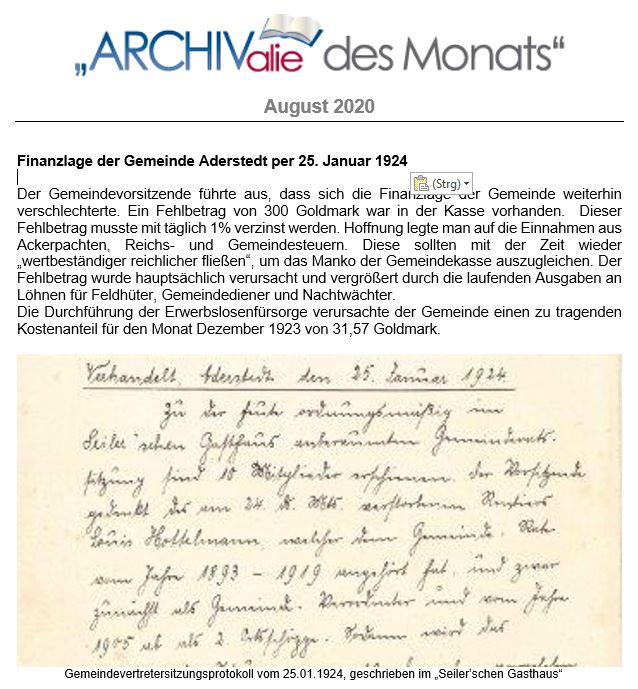 „ARCHIValie des Monats“
August 2020
Finanzlage der Gemeinde Aderstedt per 25. Januar 1924
(Strg)
Der Gemeindevorsitzende führte aus, dass sich die Finanzlage der Gemeinde weiterhin
verschlechterte. Ein Fehlbetrag von 300 Goldmark war in der Kasse vorhanden. Dieser
Fehlbetrag musste mit täglich 1% verzinst werden. Hoffnung legte man auf die Einnahmen aus
Ackerpachten, Reichs- und Gemeindesteuern. Diese sollten mit der Zeit wieder
„wertbeständiger reichlicher fließen“, um das Manko der Gemeindekasse auszugleichen. Der
Fehlbetrag wurde hauptsächlich verursacht und vergrößert durch die laufenden Ausgaben an
Löhnen für Feldhüter, Gemeindediener und Nachtwächter.
Die Durchführung der Erwerbslosenfürsorge verursachte der Gemeinde einen zu tragenden
Kostenanteil für den Monat Dezember 1923 von 31,57 Goldmark.
Verhandelt, Aderstedt den 25. Januar 1924.
Zu der heute ordnungsmäßig im
Seiler'schen Gasthaus anberaumten Gemeinderats-
sitzung sind 10 Mitglieder erschienen. Der Vorsitzende
gedenkt des am 24. d. Mts. verstorbenen Rentiers
Louis Hottelmann, welcher dem Gemeinde-Rat
vom Jahre 1893 - 1919 angehört hat, und zwar
zunächst als Gemeinde-Verordneter und vom Jahre
1905 ab als 2. Ortsschöppe. Sodann wird das
Gemeindevertretersitzungsprotokoll vom 25.01.1924, geschrieben im „Seiler'schen Gasthaus“